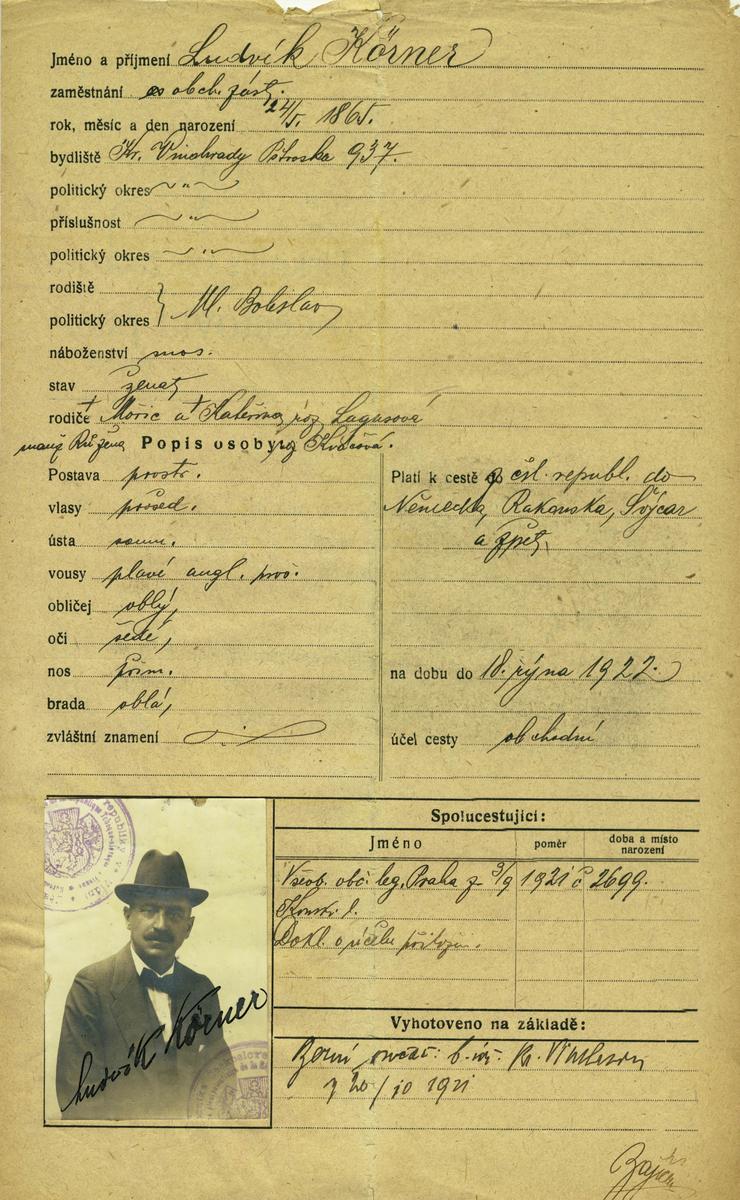 Jméno a příjmení Ludvík Körner
zaměstnání obch. zást.
rok, měsíc a den narození 24/5. 1865.
bydliště Kr. Vinohrady Pštroska 937.
politický okres — " —
příslušnost — " —
politický okres — " —
rodiště
politický okres } Ml. Boleslav
náboženství mos.
stav ženat
rodiče † Mořic a † Kateřina roz.
manž. Růžena Popis osoby roz.
Postava prostř.
vlasy prošed.
ústa soum.
vousy plavé angl. proš.
obličej oblý,
oči šedé,
nos přim.
brada oblá,
zvláštní znamení
Platí k cestě z čsl. republ. do
Německa, Rakouska, Švýcar
a zpět.
na dobu do 18. října 1922.
účel cesty obchodní
Spolucestující:
Jméno poměr doba a místo narození
Všeob. obč. leg. Praha z 3/9 1921 č 2699.
Konskr. l.
Dokl. o účelu
Vyhotoveno na základě:
Berní Kr. Vinohrady
z 20/10 1921
Ludvík Körner